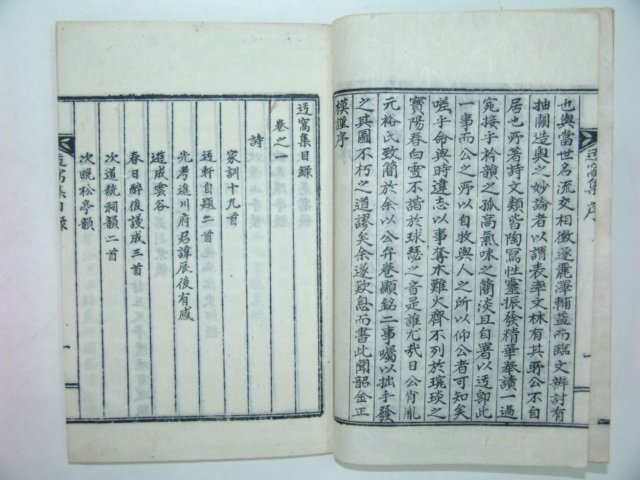 也與當世名流交相徵逐麗澤輔益而臨文辨討有
抽關造奧之妙論者以謂表率文林有其所公不自
居也所著詩文類皆陶寫性靈振發精華莘讀一過
宛接乎衿韻之孤高氣味之簡淡且自署以迃卽此
一事而公之所以自牧與人之所以仰公者可知矣
嗟乎命與時違志以事奪木難火齊不列於琬琰之
寶陽春白雪不諧於球瑟之音是誰尤哉日公肖胤
元裕氏致簡於余以公弁卷顯銘二事囑以拙手發
之其圖不朽之道謬矣余遂歎息而書此聞韶金正
模謹序
迃窩集序
迃窩集目錄
卷之一
詩
家訓十九首
迃軒自題二首
先考進川府君諱辰後有感
遊成雲谷
春日醉後謾成三首
次道統洞韻二首
次晩松亭韻
迃窩集目錄
一